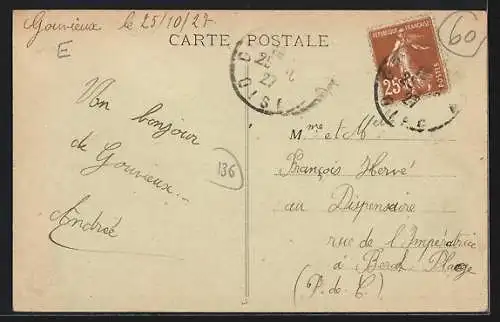 Gouvieux le 25/10/27
E
60
CARTE POSTALE
REPUBLIQUE FRANÇAISE
POSTES
25
25
27
OISE
Un bonjour
de Gouvieux...
Andrée
136
Mme et Mr
François Hervé
au Dispensaire
rue de l'Impératrice
à Berck Plage
(P. de C.)